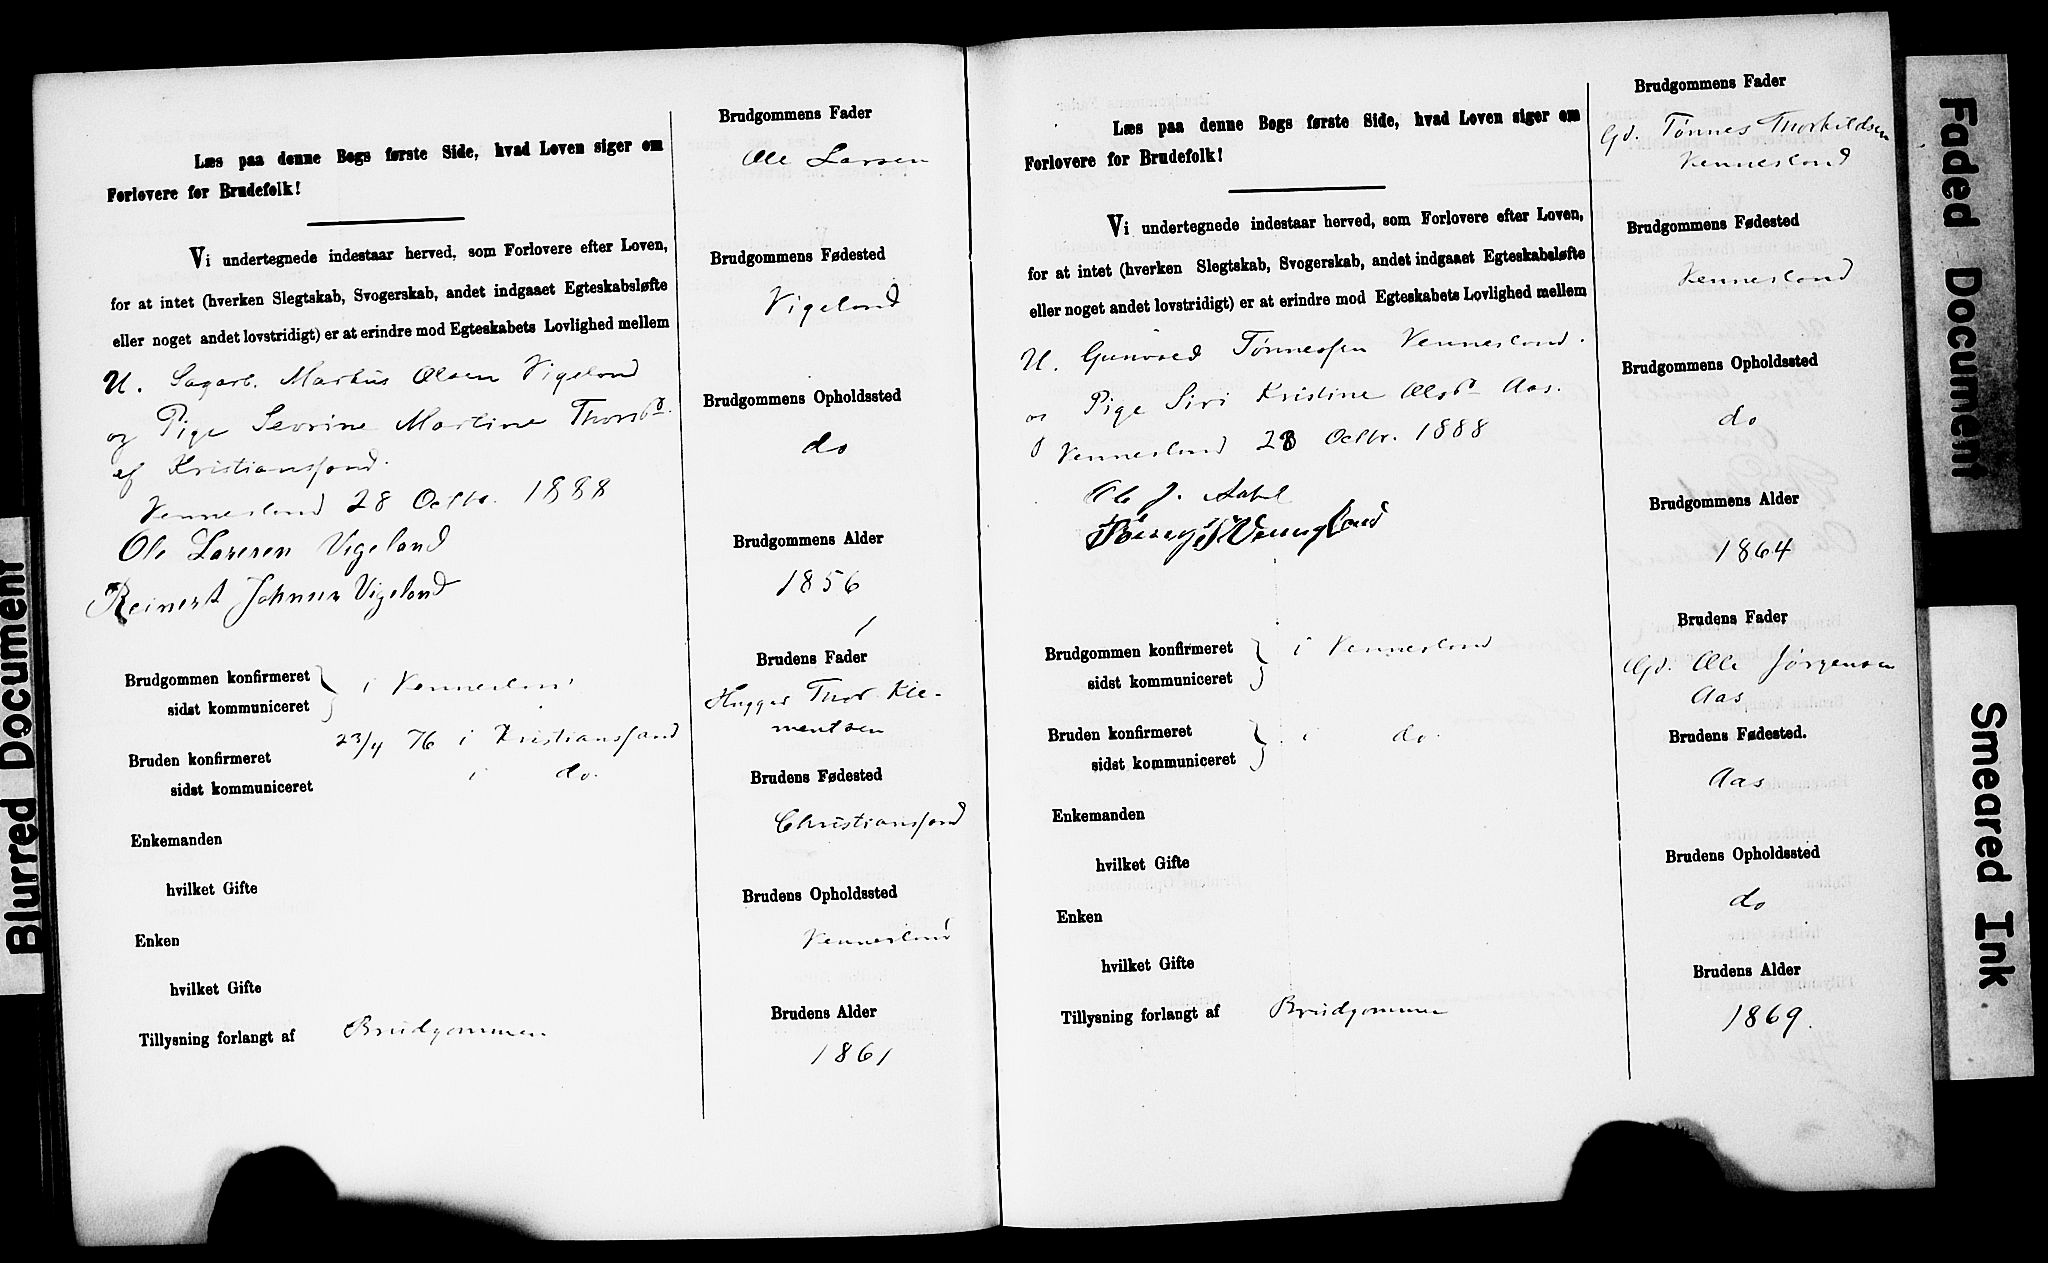 Læs paa denne Bogs første Side, hvad Loven siger om
Forlovere for Brudefolk!
Vi undertegnede indestaar herved, som Forlovere efter Loven,
for at intet (hverken Slegtskab, Svogerskab, andet indgaaet Egteskabsløfte
eller noget andet lovstridigt) er at erindre mod Egteskabets Lovlighed mellem
U. Sagarb. Markus Olsen Vigeland
og Pige Sevrine Martine Thorsd.
af Kristianssand.
Vennesland 28 Octbr. 1888
Ole Larsen Vigeland
Reinert Johnsen Vigeland
Brudgommen konfirmeret
sidst kommuniceret
i Vennesland
Bruden konfirmeret
sidst kommuniceret
23/4 76 i Kristianssand
i do.
Enkemanden
hvilket Gifte
Enken
hvilket Gifte
Tillysning forlangt af Brudgommen
Brudgommens Fader
Ole Larsen
Brudgommens Fødested
Vigeland
Brudgommens Opholdssted
do
Brudgommens Alder
1856
Brudens Fader
Hugger Thor Kle-
mentsen
Brudens Fødested
Christianssand
Brudens Opholdssted
Vennesland
Brudens Alder
1861
Læs paa denne Bogs første Side, hvad Loven siger om
Forlovere for Brudefolk!
Vi undertegnede indestaar herved, som Forlovere efter Loven,
for at intet (hverken Slegtskab, Svogerskab, andet indgaaet Egteskabsløfte
eller noget andet lovstridigt) er at erindre mod Egteskabets Lovlighed mellem
U. Gunvald Tønnessen Vennesland.
og Pige Siri Kristine Olsd. Aas.
Vennesland 28 Octbr. 1888
Ole J.
Brudgommen konfirmeret
sidst kommuniceret
i Vennesland
Bruden konfirmeret
sidst kommuniceret
i do.
Enkemanden
hvilket Gifte
Enken
hvilket Gifte
Tillysning forlangt af Brudgommen
Brudgommens Fader
Gd. Tønnes Thorkildsen
Vennesland
Brudgommens Fødested
Vennesland
Brudgommens Opholdssted
do
Brudgommens Alder
1864
Brudens Fader
Gd. Ole Jørgensen
Aas
Brudens Fødested.
Aas
Brudens Opholdssted
do
Brudens Alder
1869.
Blurred Document
Faded Document
Smeared Ink